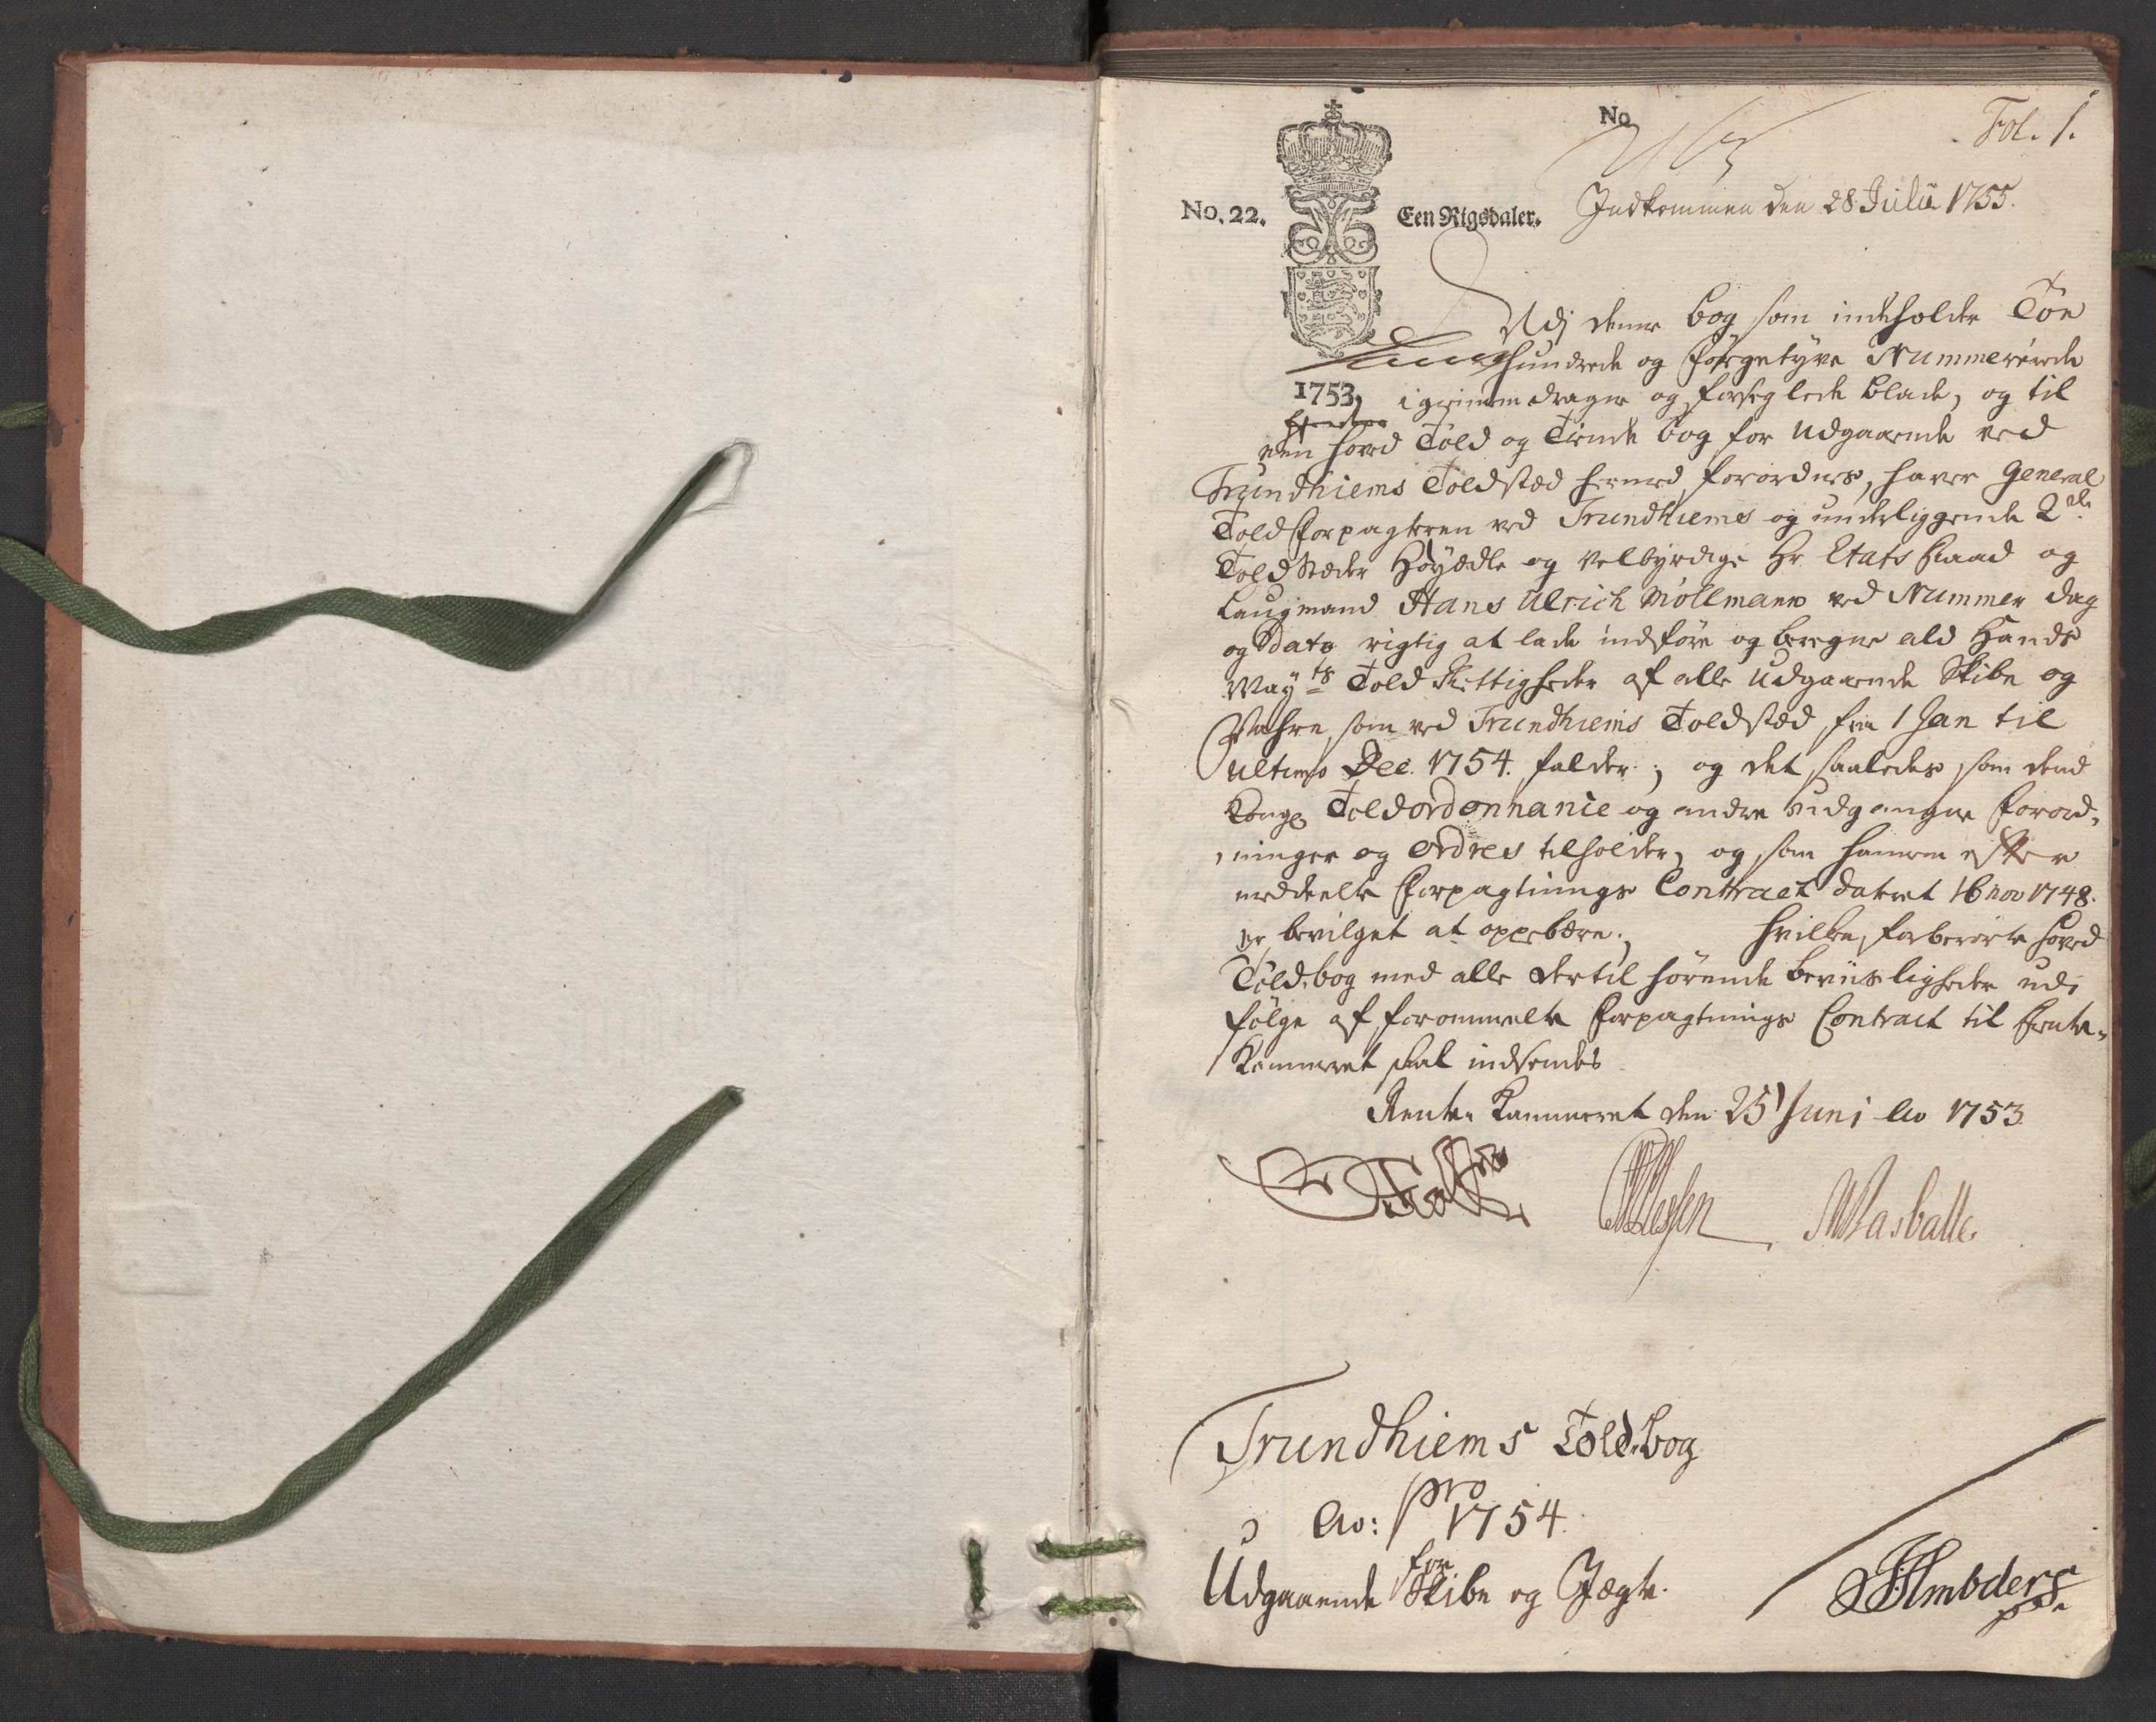 No
Fol. 1.
No. 22.
Een Rigsdaler.
Indkommen den 28 Julii 1755.
Udj denne bog som indeholder Toe
hundrede og førgetyve Nummererede
1753.
igiennemdragne og forseglede blade, og til
een hoved Told og Tiende bog for udgaaende ved
Trundhiems Toldsted hermed forordnes, haver General
Told Forpagteren ved Trundhiems og underliggende 2de
Told Stæder Høyædle og Velbyrdige Hr. Etats Raad og
Laugmand Hans Ulrich Möllmann ved Nummer dag
og Dato rigtig at lade indføre og beregne ald Hands
Mayts Told Rettigheder af alle udgaaende Skibe og
Vahre, som ved Trundhiems Toldsted fra 1 Jan til
ultimo Dec. 1754. falder; og det saaledes som dend
Kongl. Toldordonnance og andre udgangne Forord-
ninger og ordres tilholder, og som hannem efter
meddeelte Forpagtnings Contract dateret 16 nov 1748.
er bevilget at oppebære; hvilken forberørte hoved
Told-bog med alle dertil hørende beviisligheder udi
følge af forommelte Forpagtnings Contract til Rente-
Kammeret skal indsendes
Rente-Kammeret den 25 Juni Ao 1753.
Trundhiems Told-bog
pro
Ao: 1754.
for
Udgaaende Skibe og Jægte.